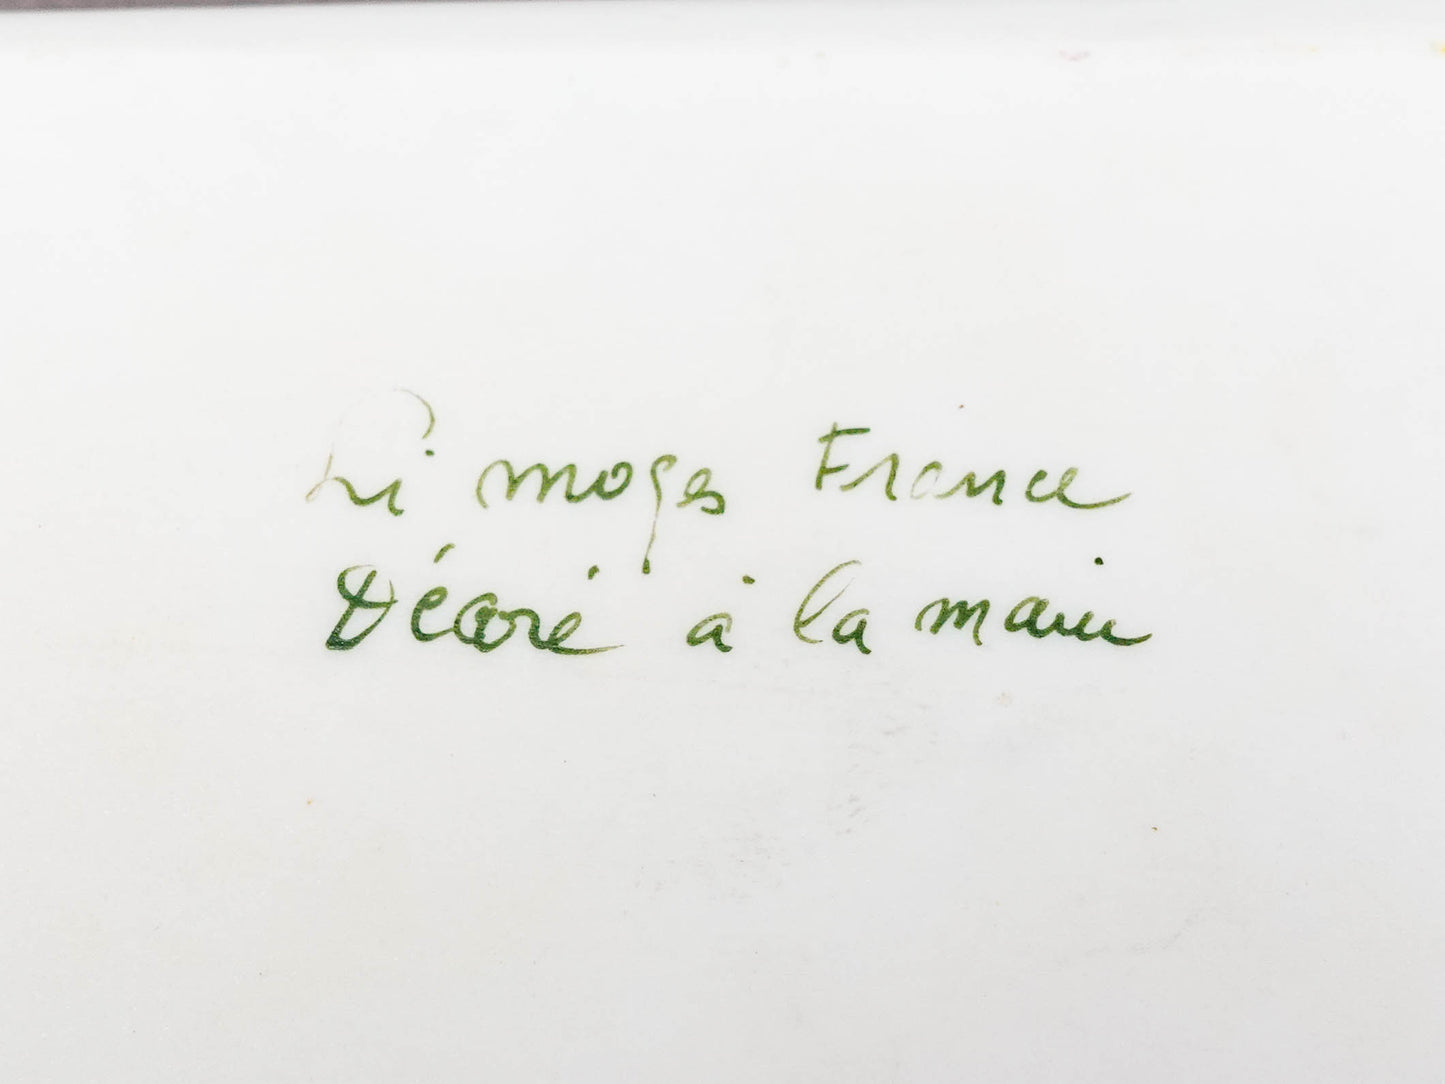 Limoges France
Décoré à la main